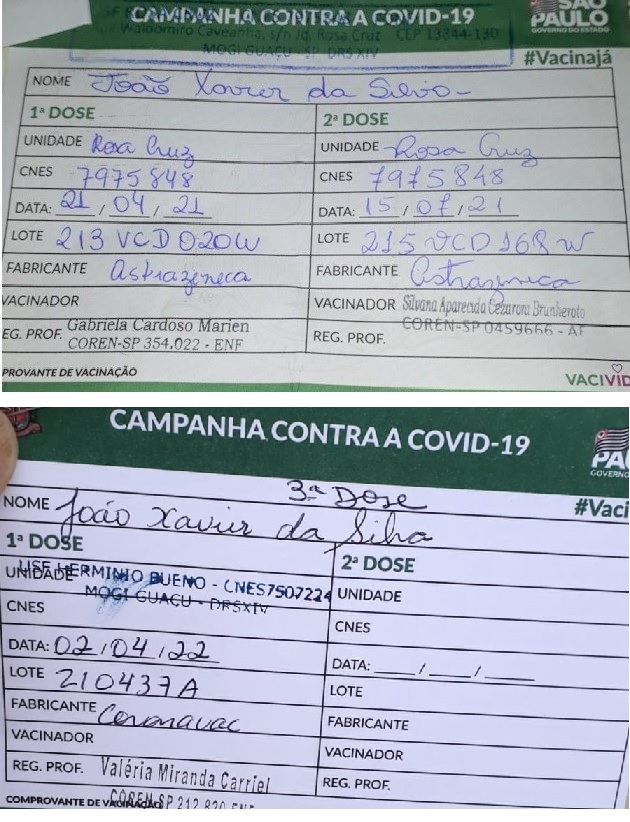 CAMPANHA CONTRA A COVID-19
SÃO PAULO
GOVERNO DO ESTADO
Waldomiro Caveanha, s/n Jd. Rosa Cruz CEP 13844-130
MOGI GUAÇU - SP DRS XIV
#Vacinajá
NOME João Xavier da Silva
1ª DOSE
UNIDADE Rosa Cruz
CNES 7975848
DATA: 21 / 04 / 21
LOTE 213 VCD 020W
FABRICANTE Astrazeneca
VACINADOR
EG. PROF. Gabriela Cardoso Marien
COREN-SP 354.022 - ENF
2ª DOSE
UNIDADE Rosa Cruz
CNES 7975848
DATA: 15 / 07 / 21
LOTE 215 VCD 168 W
FABRICANTE Astrazenica
VACINADOR Silvana Aparecida Cezaroni Brunheroto
COREN-SP 0459666 - AE
REG. PROF.
PROVANTE DE VACINAÇÃO
VACIVID
CAMPANHA CONTRA A COVID-19
PA
GOVERNO
3ª Dose
#Vaci
NOME João Xavier da Silva
1ª DOSE
UNIDADE USF HERMINIO BUENO - CNES7507224
MOGI GUAÇU - DRSXIV
CNES
DATA: 02 / 04 / 22
LOTE 210437A
FABRICANTE Coronavac
VACINADOR
REG. PROF. Valéria Miranda Carriel
COREN SP 212.820 ENF
2ª DOSE
UNIDADE
CNES
DATA: ___/___/___
LOTE
FABRICANTE
VACINADOR
REG. PROF.
COMPROVANTE DE VACINAÇÃO